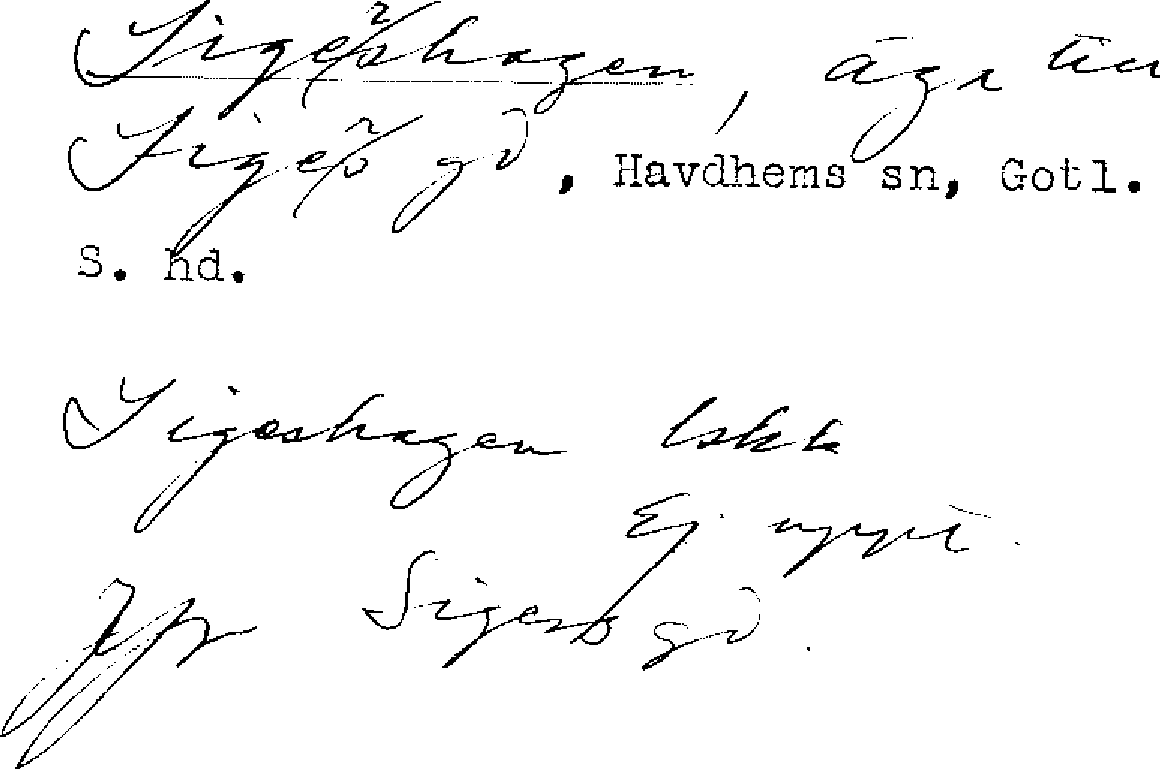 Sigershagen, äga till
Sigers gd, Havdhems sn, Gotl.
S. hd.
Sigeshagen lskk
Ej uppt.
Jfr Sigers gd.